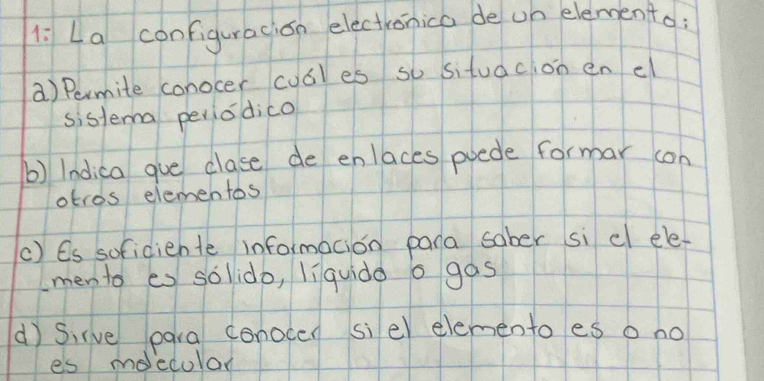 1: La configuración electrónica de un elemento:
a) Permite conocer cuál es su situación en el
sistema periódico
b) Indica que clase de enlaces puede formar con
otros elementos
c) Es suficiente información para saber si el ele-
mento es sólido, líquido o gas
d) Sirve para conocer si el elemento es o no
es molecular